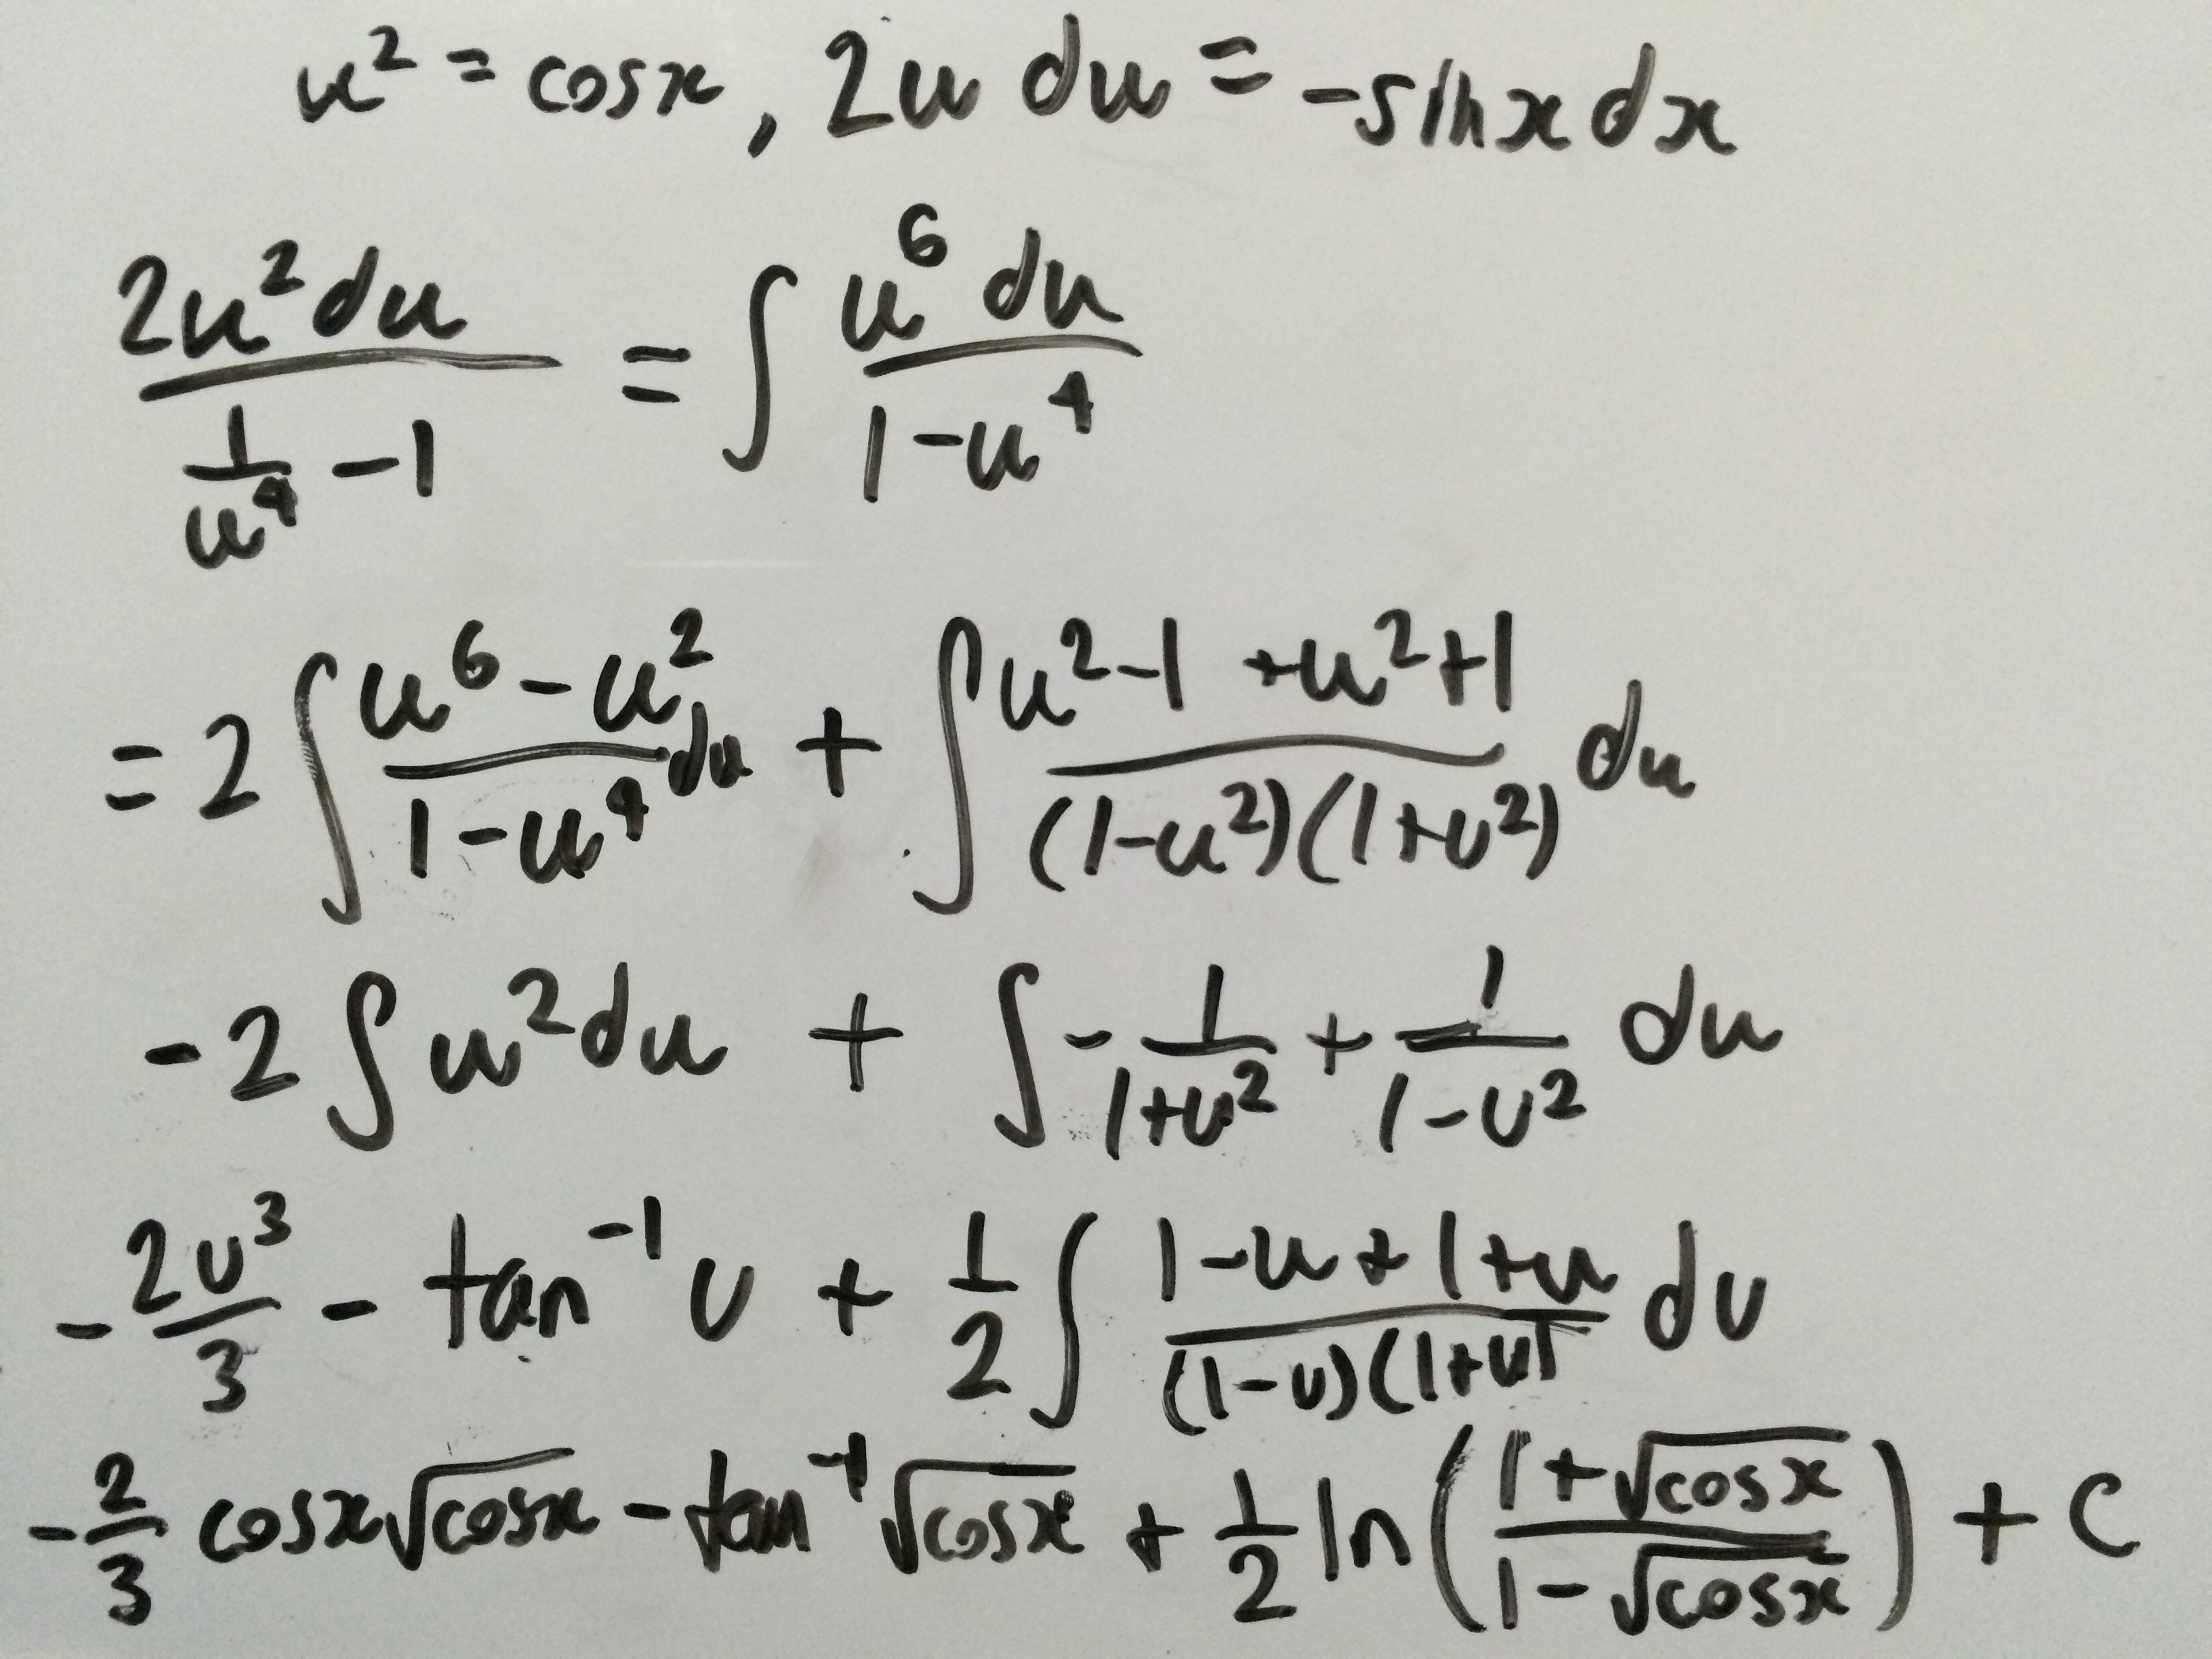 u² = cosx, 2u du = -sinx dx
\frac{2u² du}{\frac{1}{u⁴} - 1} = ∫ \frac{u⁶ du}{1-u⁴}
= 2 ∫ \frac{u⁶ - u²}{1-u⁴} du + ∫ \frac{u²-1 + u²+1}{(1-u²)(1+u²)} du
-2 ∫ u² du + ∫ -\frac{1}{1+u²} + \frac{1}{1-u²} du
-\frac{2u³}{3} - tan⁻¹ u + \frac{1}{2} ∫ \frac{1-u+1+u}{(1-u)(1+u)} du
-\frac{2}{3} cosx√cosx - tan⁻¹ √cosx + \frac{1}{2} ln(\frac{1+√cosx}{1-√cosx}) + C